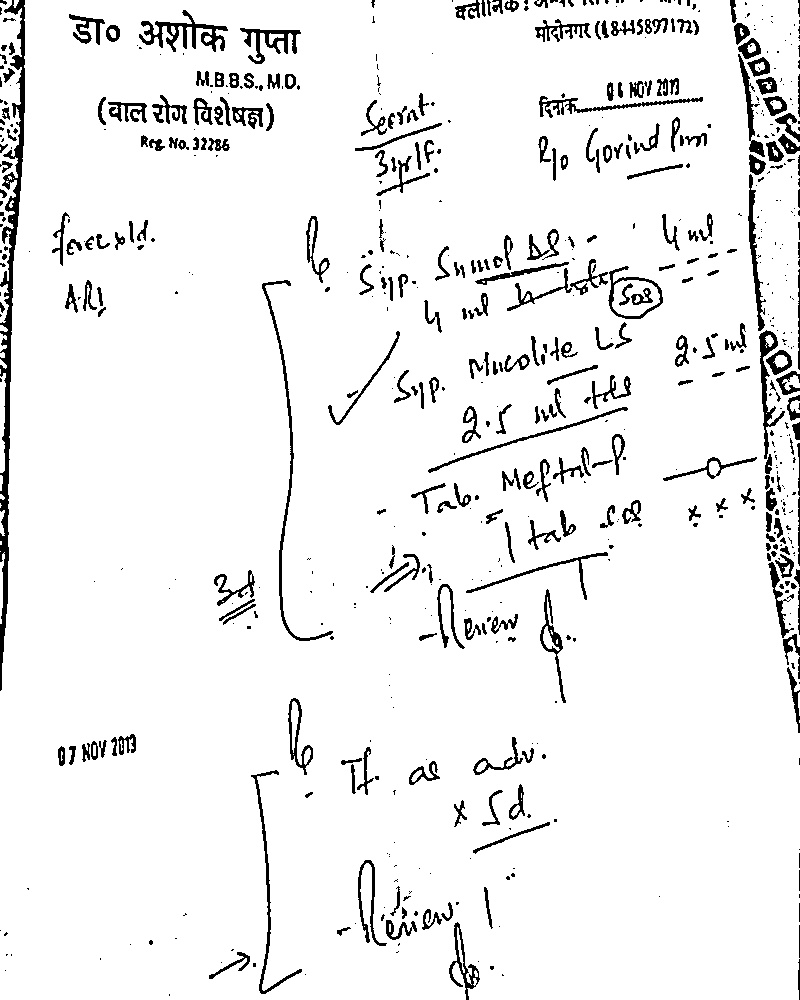 डा० अशोक गुप्ता
M.B.B.S., M.D.
(बाल रोग विशेषज्ञ)
Reg. No. 32286
क्लीनिक :
मोदीनगर (18445897172)
दिनांक 06 NOV 2013
R/o Govind Puri
3yr/F.
Fever x1d.
ARI
Syp. Sumol DS - 4 ml
4 ml SOS
Syp. Mucolite LS 2.5 ml
2.5 ml tds
- Tab. Meftal-P.
1 tab sos x x x
3d
- Review
07 NOV 2013
Tt. as adv.
x 5d.
- Review